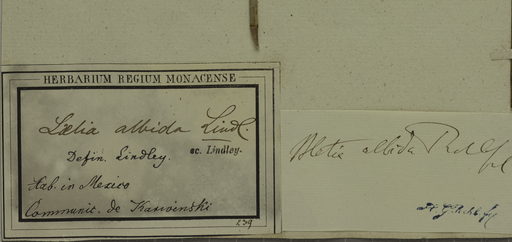 HERBARIUM REGIUM MONACENSE
Lælia albida Lindl.
Defin. Lindley. sc. Lindley.
Hab. in Mexico
Communic. de Karwinski
239
Bletia albida Rchb. f.